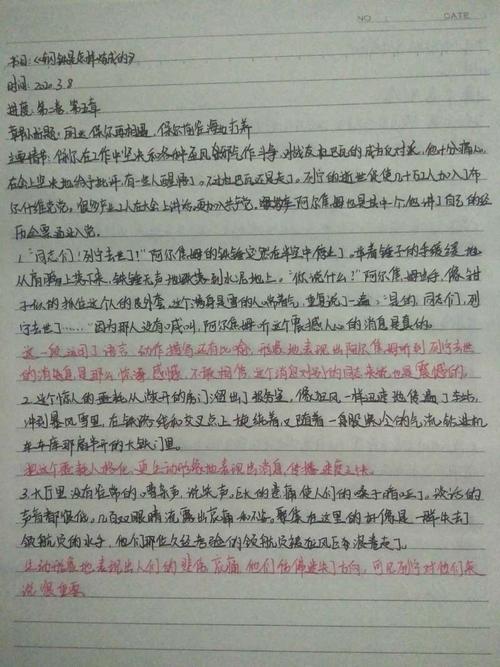 NO DATE
书目:《钢铁是怎样炼成的》
时间: 2020.3.8
进度: 第二卷 第五章
章节小标题: 丽达保尔再相遇, 保尔向在海边疗养
主要情节: 保尔在工作中坚决和各种歪风邪气作斗争, 对战友
在会上坚决地给予批评, 有一些人醒悟了。列宁的逝世促使几十万工人加入了布
尔什维克党, 很多产业工人在大会上讲话, 要加入共产党。阿尔焦姆也是其中一个, 他讲了自己的经
历会要加入党
1."同志们!列宁去世了!"阿尔焦姆的铁锤突然在半空中停止了。举着锤子的手缓缓地
从肩膀上落下来, 铁锤无声地跌落到水泥地上。"你说什么?"阿尔焦姆出手, 像钳
子似的抓住这个人的皮外套。这个满身是雪的人喘着气, 重复说了一遍:"是的, 同志们, 列
宁去世了……"因为那人没有喊叫, 阿尔焦姆听这个震撼人心的消息是真的。
这一段运用了语言、动作描写还有比喻, 形象地表现出阿尔焦姆听到列宁去世
的消息是那么惊讶感慨, 不敢相信, 这个消息对别的同志来说也是震憾的。
2.这个惊人的噩耗从敞开的房门溜出了报务室, 像狂风一样迅速地传遍了车站,
冲到暴风雪里, 在铁路线和交叉点上旋绕着, 又随着一股股寒冷的气流, 钻进机
车车库那扇半开的大铁门里。
把这个噩耗人格化, 更生动形象地表现出消息传播速度之快。
3.大厅里没有往常的嘈杂声、说笑声。巨大的悲痛使人们的嗓子暗哑了。谈话的
声音都很低, 几百双眼睛流露出哀痛和不安。聚集在这里的好像是一群失去了
领航员的水手, 他们那位久经考验的领航员被狂风巨浪卷走了。
生动形象地表现出人们的悲伤哀痛, 他们仿佛迷失了方向, 可见列宁对他们来
说很重要